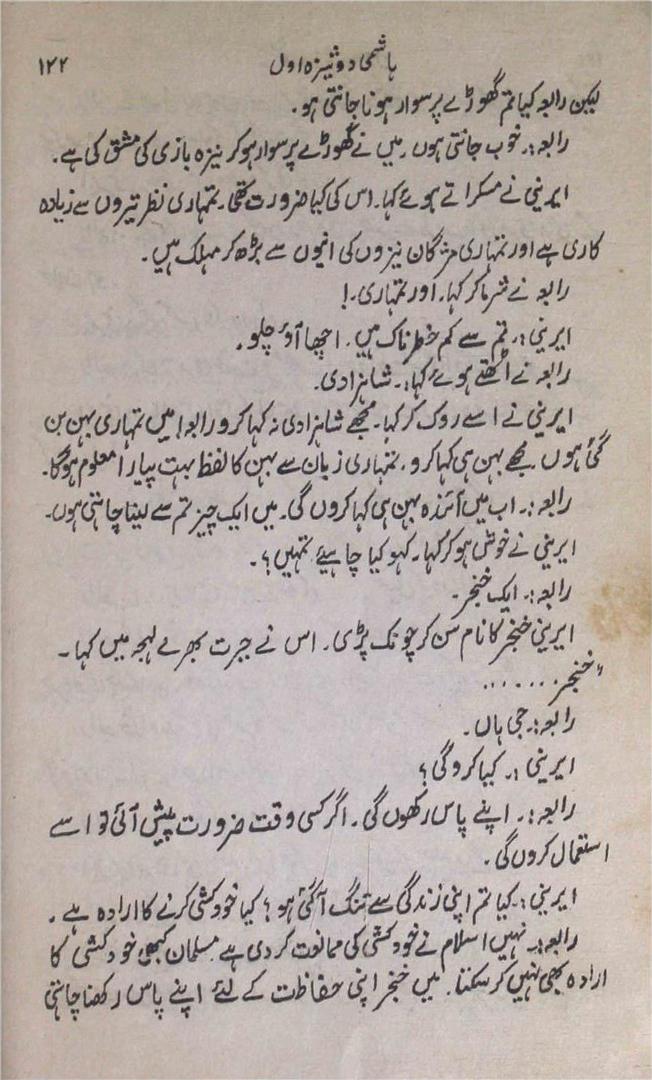 ۱۲۲ ہاشمی دوشیزہ اول
لیکن رابعہ کیا تم گھوڑے پر سوار ہونا جانتی ہو۔
رابعہ:۔ خوب جانتی ہوں۔ میں نے گھوڑے پر سوار ہو کر نیزہ بازی کی مشق کی ہے۔
ایرینی نے مسکراتے ہوئے کہا۔ اس کی کیا ضرورت تھی۔ تمہاری نظر تیروں سے زیادہ
کاری ہے اور تمہاری مژگان نیزوں کی انیوں سے بڑھ کر مہلک ہیں۔
رابعہ نے شرما کر کہا۔ اور تمہاری۔!
ایرینی:۔ تم سے کم خطرناک ہیں۔ اچھا آؤ چلو۔
رابعہ نے اٹھتے ہوئے کہا:۔ شاہزادی۔
ایرینی نے اسے روک کر کہا۔ مجھے شاہزادی نہ کہا کرو رابعہ! میں تمہاری بہن بن
گئی ہوں۔ مجھے بہن ہی کہا کرو۔ تمہاری زبان سے بہن کا لفظ بہت پیارا معلوم ہوگا۔
رابعہ:۔ اب میں آئندہ بہن ہی کہا کروں گی۔ میں ایک چیز تم سے لینا چاہتی ہوں۔
ایرینی نے خوش ہو کر کہا۔ کہو کیا چاہیئے تمہیں؟۔
رابعہ:۔ ایک خنجر۔
ایرینی خنجر کا نام سن کر چونک پڑی۔ اس نے حیرت بھرے لہجہ میں کہا۔
"خنجر......
رابعہ:۔ جی ہاں۔
ایرینی:۔ کیا کرو گی؟
رابعہ:۔ اپنے پاس رکھوں گی۔ اگر کسی وقت ضرورت پیش آئی تو اسے
استعمال کروں گی۔
ایرینی:۔ کیا تم اپنی زندگی سے تنگ آ گئی ہو؟ کیا خودکشی کرنے کا ارادہ ہے۔
رابعہ:۔ نہیں اسلام نے خودکشی کی ممانعت کر دی ہے مسلمان کبھی خودکشی کا
ارادہ بھی نہیں کر سکتا۔ میں خنجر اپنی حفاظت کے لئے اپنے پاس رکھنا چاہتی